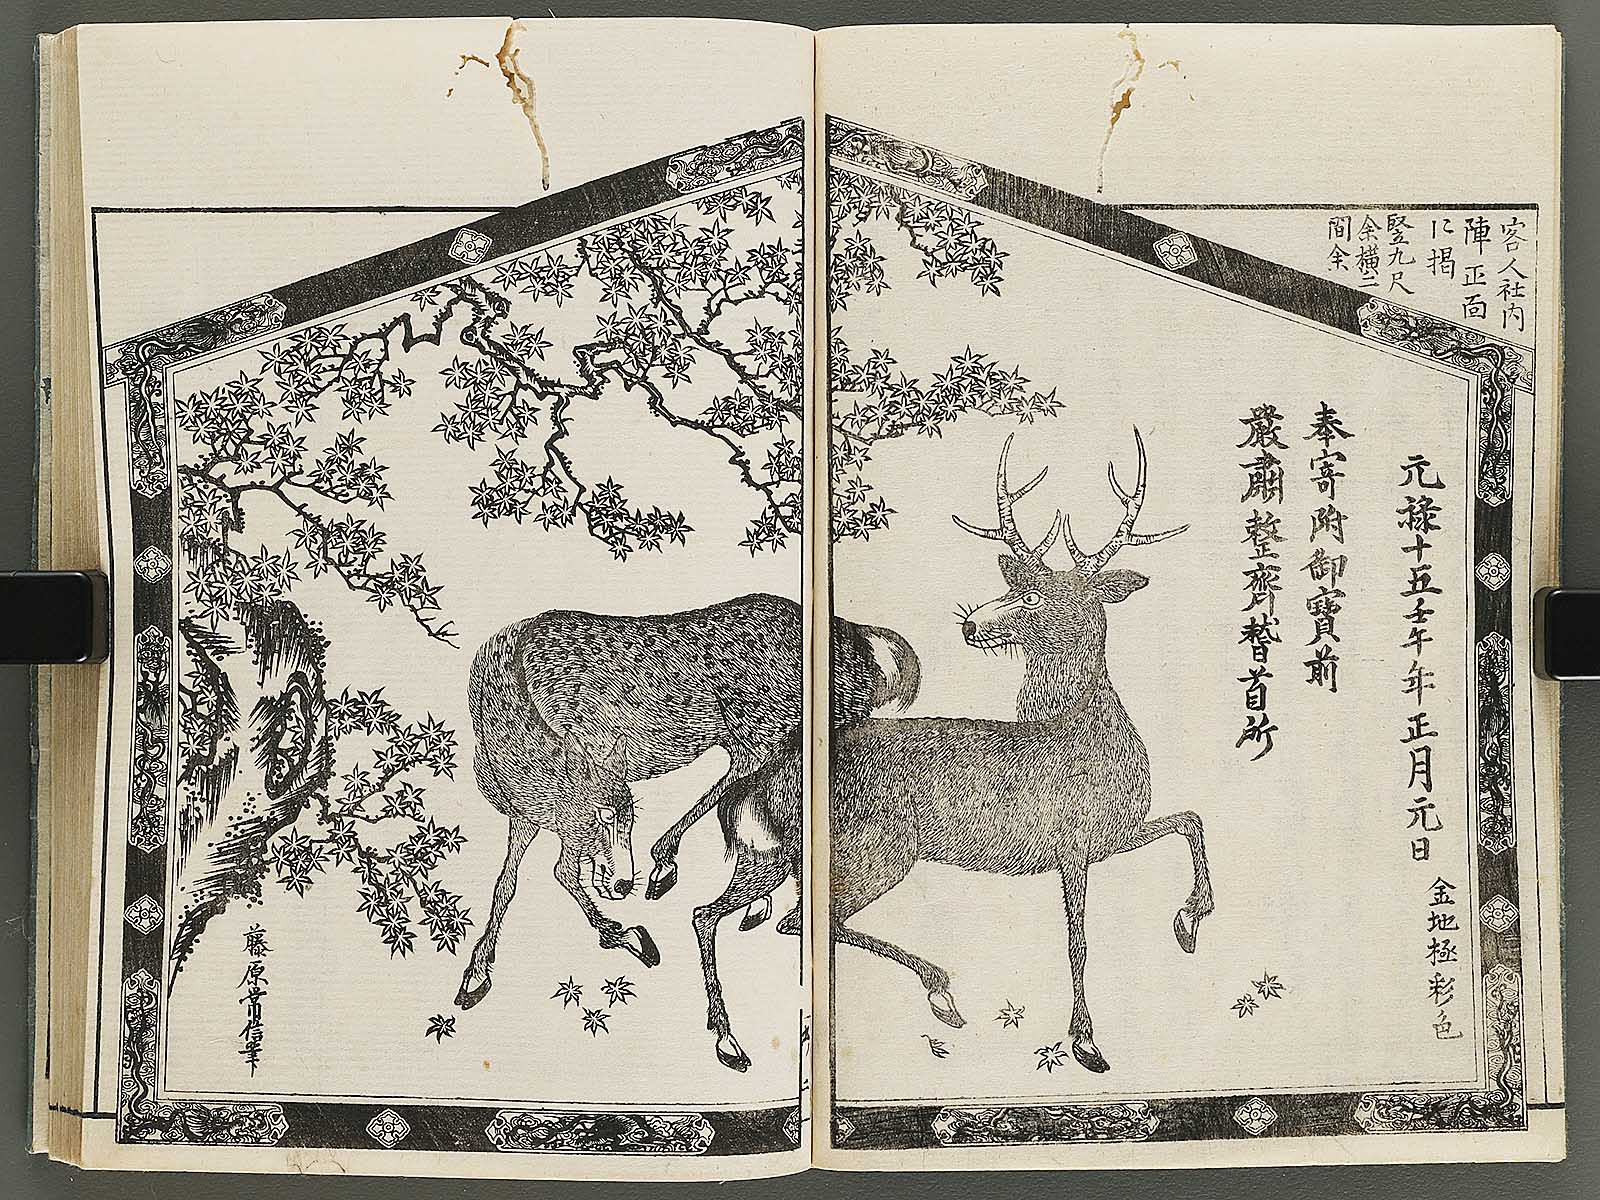 客人社内
陣正面
に掲
竪九尺
余横二
間余
元祿十五壬午年正月元日
金地極彩色
奉寄附御寶前
嚴肅整齊稽首所
藤原常信筆